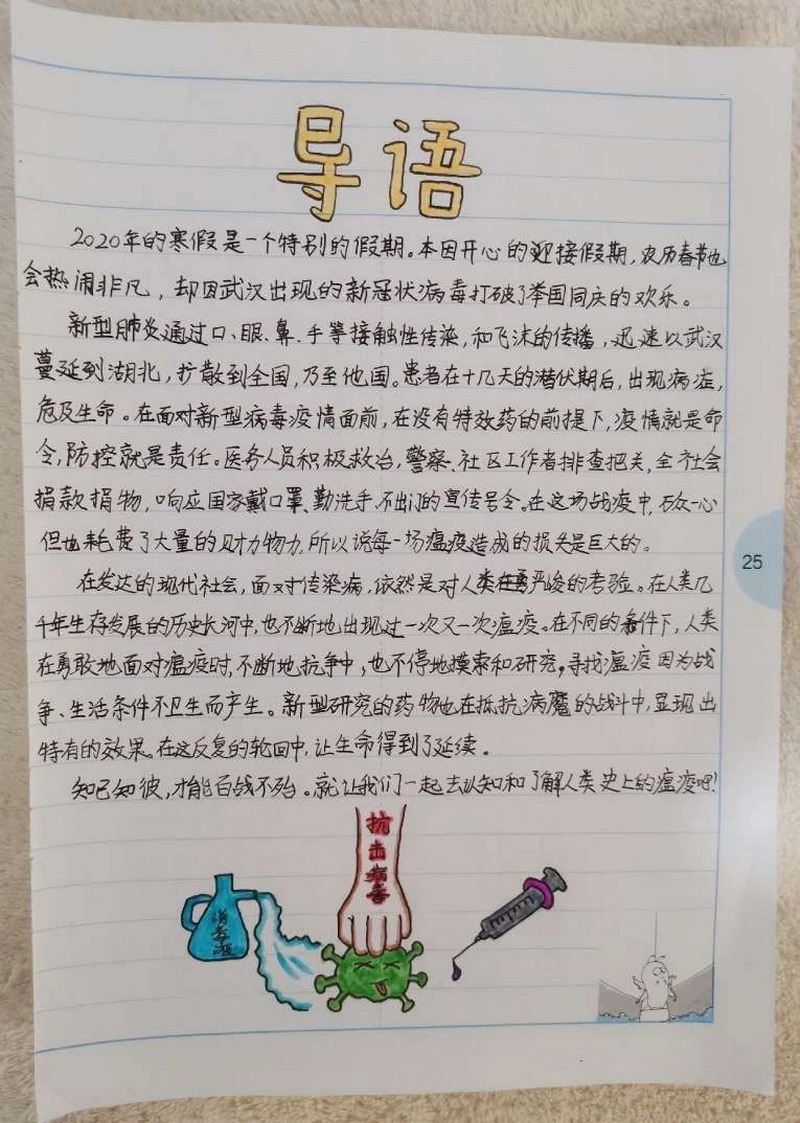 导语
2020年的寒假是一个特别的假期。本因开心的迎接假期,农历春节也
会热闹非凡,却因武汉出现的新冠状病毒打破了举国同庆的欢乐。
新型肺炎通过口、眼、鼻、手等接触性传染,和飞沫的传播,迅速以武汉
蔓延到湖北,扩散到全国,乃至他国。患者在十几天的潜伏期后,出现病症,
危及生命。在面对新型病毒疫情面前,在没有特效药的前提下,疫情就是命
令,防控就是责任。医务人员积极救治,警察、社区工作者排查把关,全社会
捐款捐物,响应国家戴口罩、勤洗手、不出门的宣传号令。在这场战疫中,众一心
但也耗费了大量的财力物力,所以说每一场瘟疫造成的损失是巨大的。
在发达的现代社会,面对传染病,依然是对人类严峻的考验。在人类几
千年生存发展的历史长河中,也不断地出现过一次又一次瘟疫。在不同的条件下,人类
在勇敢地面对瘟疫时,不断地抗争中,也不停地摸索和研究,寻找瘟疫因为战
争、生活条件不卫生而产生。新型研究的药物也在抵抗病魔的战斗中,显现出
特有的效果。在这反复的轮回中,让生命得到了延续。
知己知彼,才能百战不殆。就让我们一起去认知和了解人类史上的瘟疫吧!
抗击病毒
消毒液
25